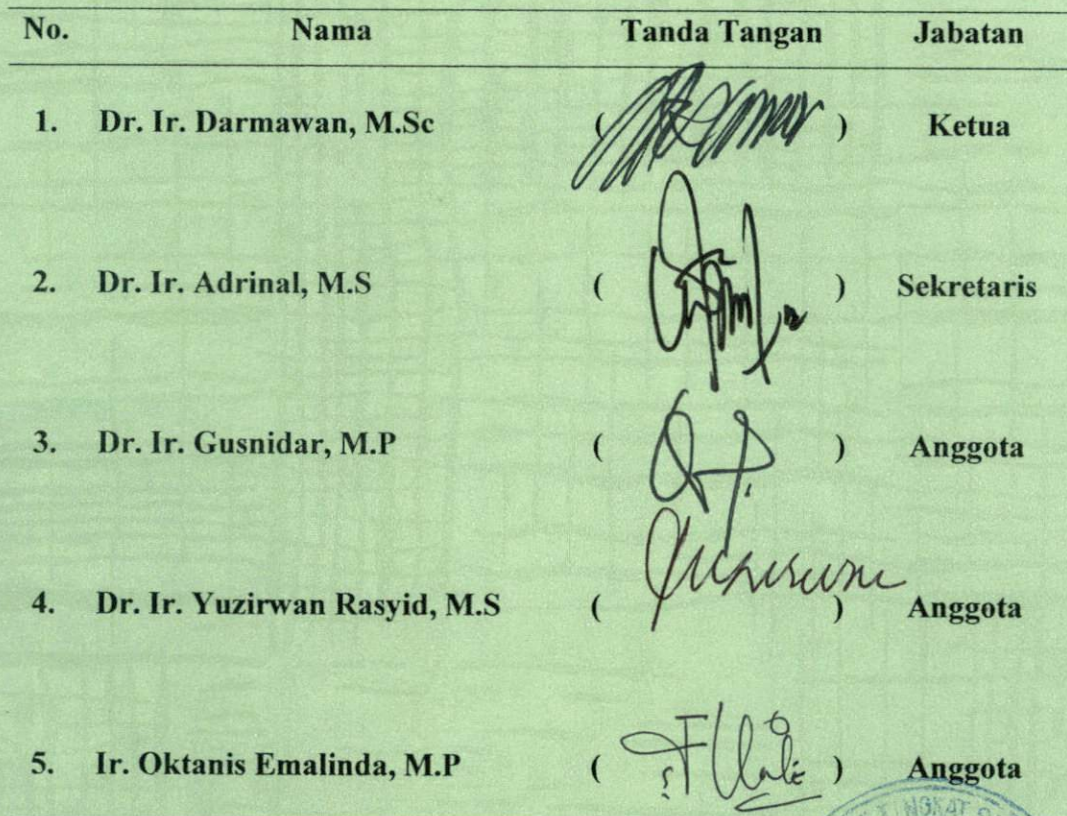 No. Nama Tanda Tangan Jabatan
1. Dr. Ir. Darmawan, M.Sc ( ) Ketua
2. Dr. Ir. Adrinal, M.S ( ) Sekretaris
3. Dr. Ir. Gusnidar, M.P ( ) Anggota
4. Dr. Ir. Yuzirwan Rasyid, M.S ( ) Anggota
5. Ir. Oktanis Emalinda, M.P ( ) Anggota